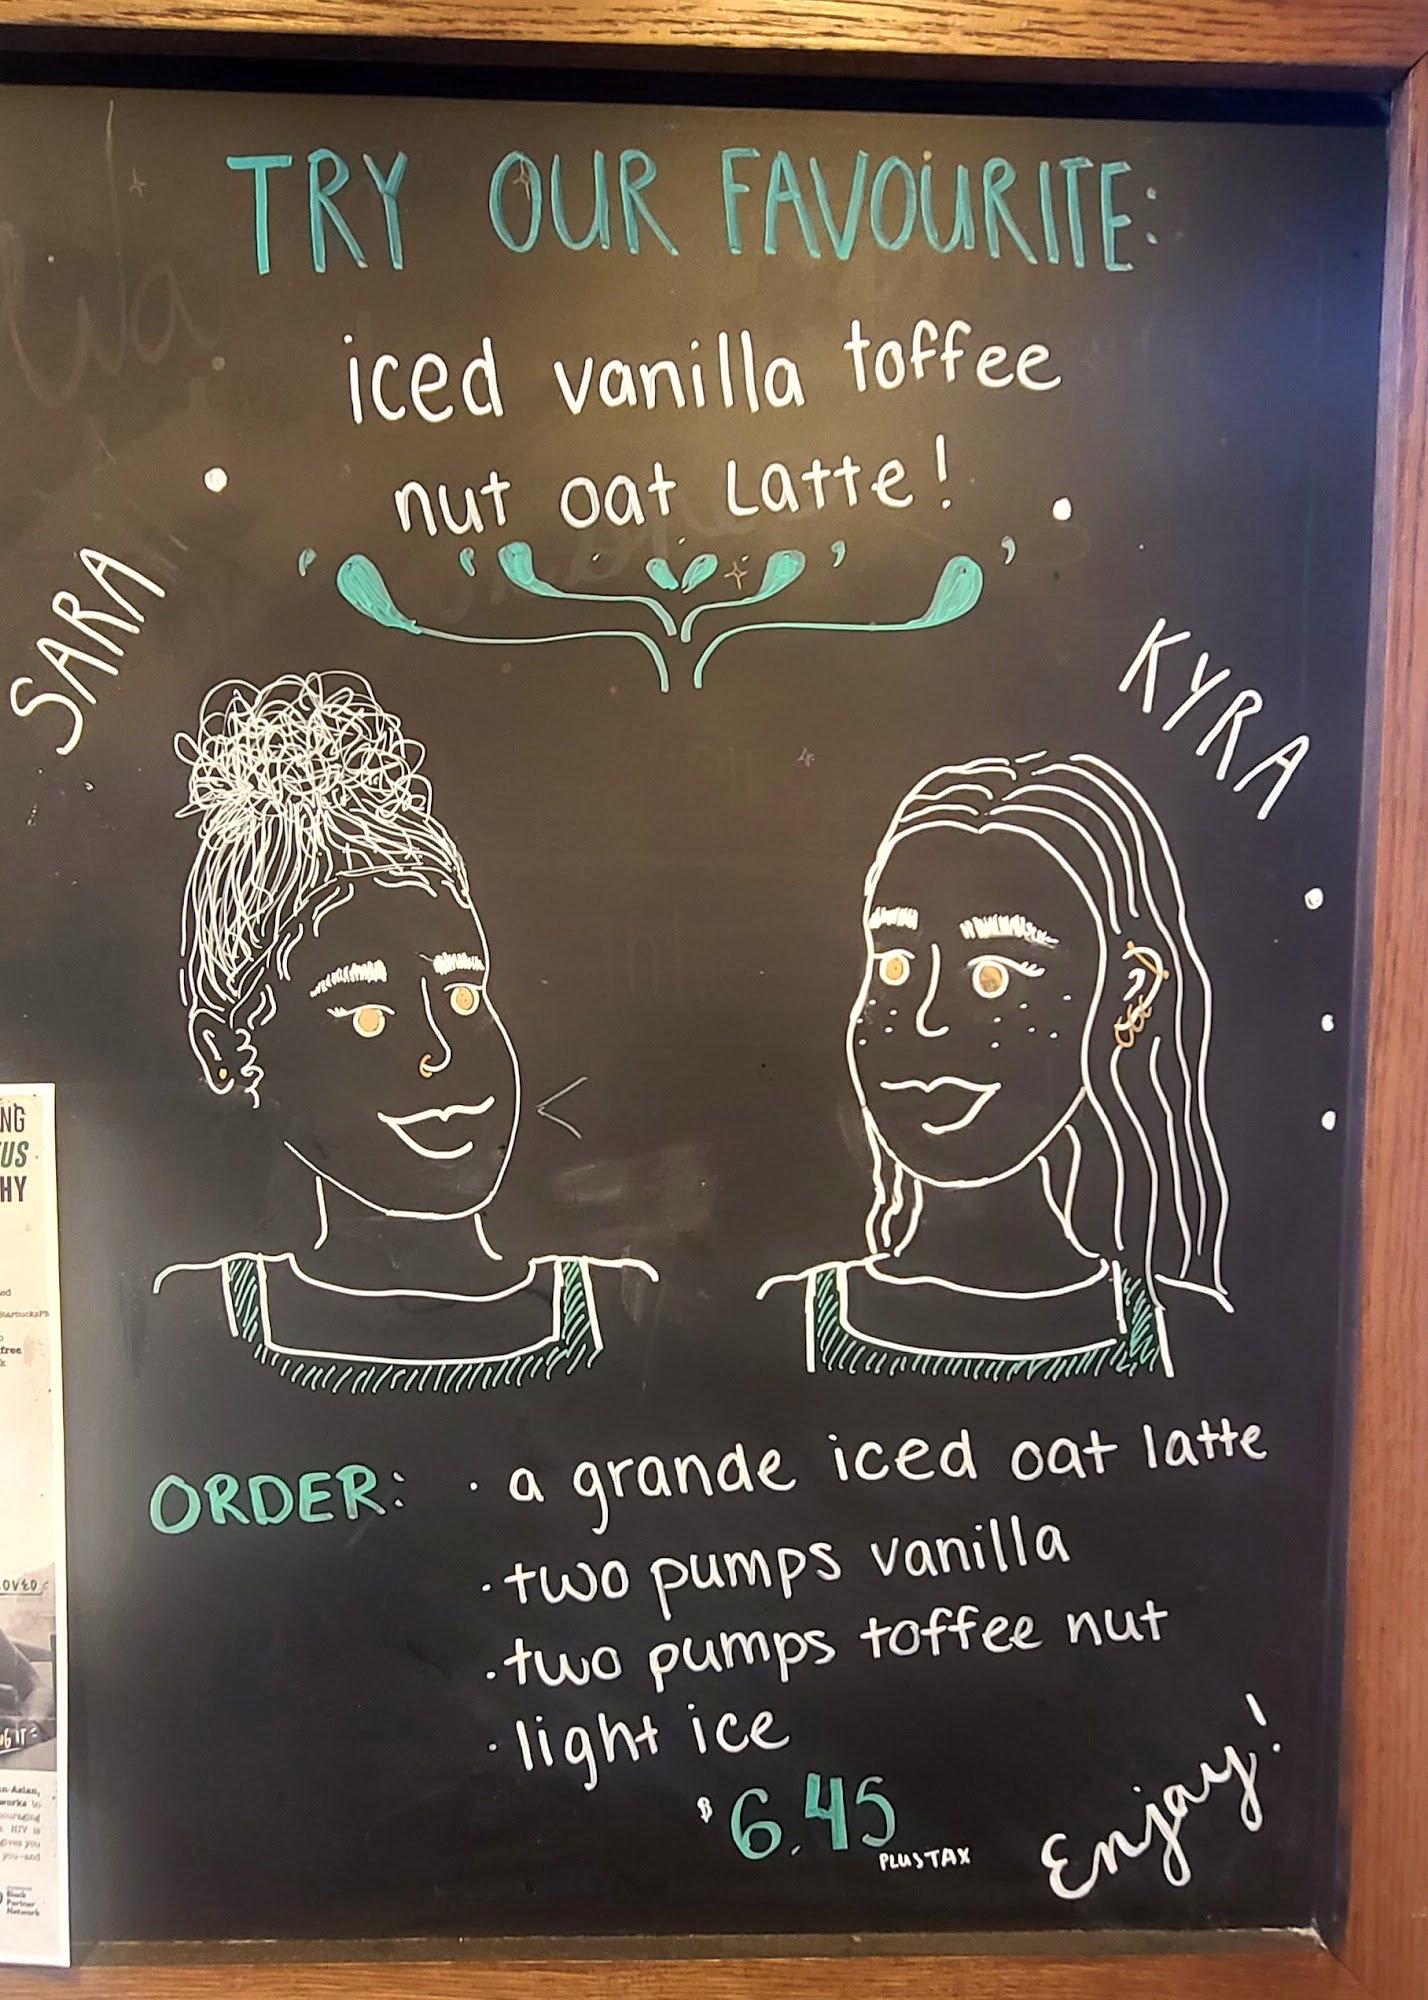 TRY OUR FAVOURITE:
iced vanilla toffee
nut oat Latte!
SARA
KYRA
ORDER: · a grande iced oat latte
· two pumps vanilla
· two pumps toffee nut
· light ice
$6.45
PLUS TAX
Enjoy!
NG
US
HY
ed
free
k
OVED
G IT
n-Asian,
works to
ouraging
HIV is
gives you
you-and
Black
Partner
Network